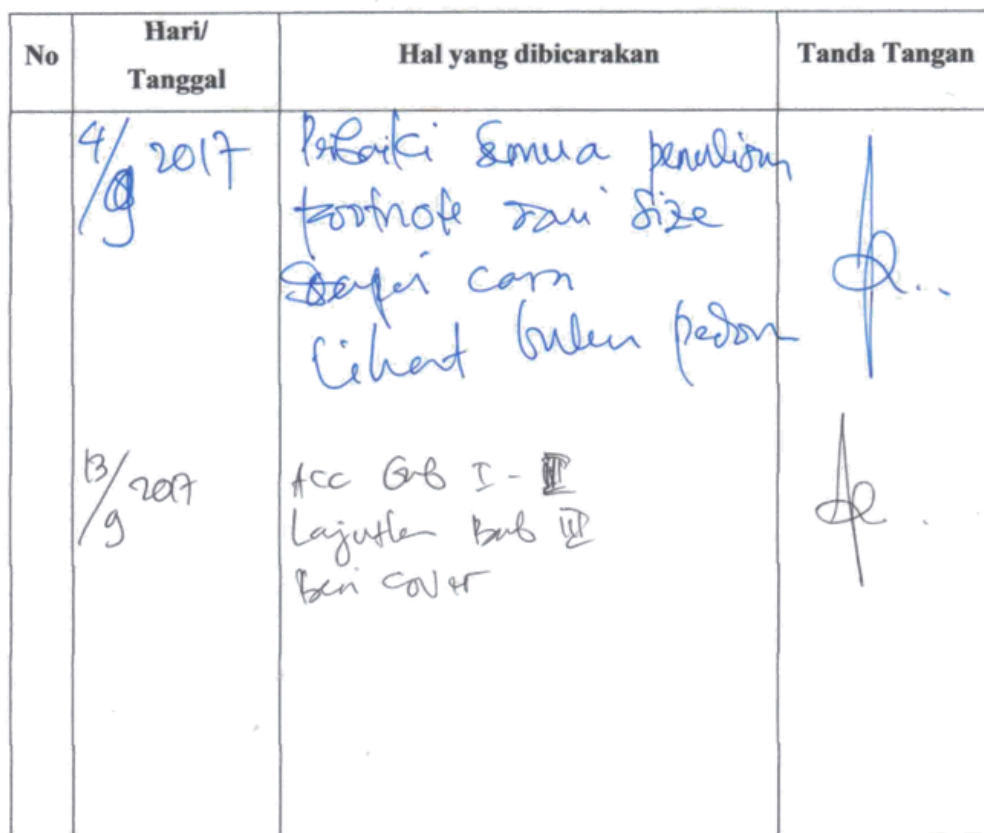 No
Hari/
Tanggal
Hal yang dibicarakan
Tanda Tangan
4/9 2017
Perbaiki semua penulisan
footnote dari size
sampai cara
Lihat buku pedom
13/9 2017
Acc Bab I - II
Lajutkan Bab III
Beri cover